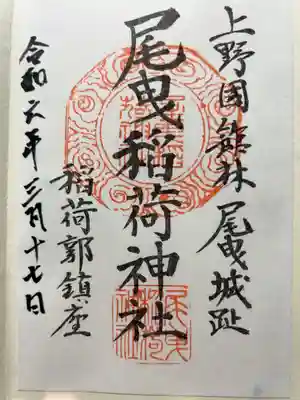 上野国館林 尾曳城趾
尾曳稲荷神社
稲荷郭鎮座
令和六年三月十七日